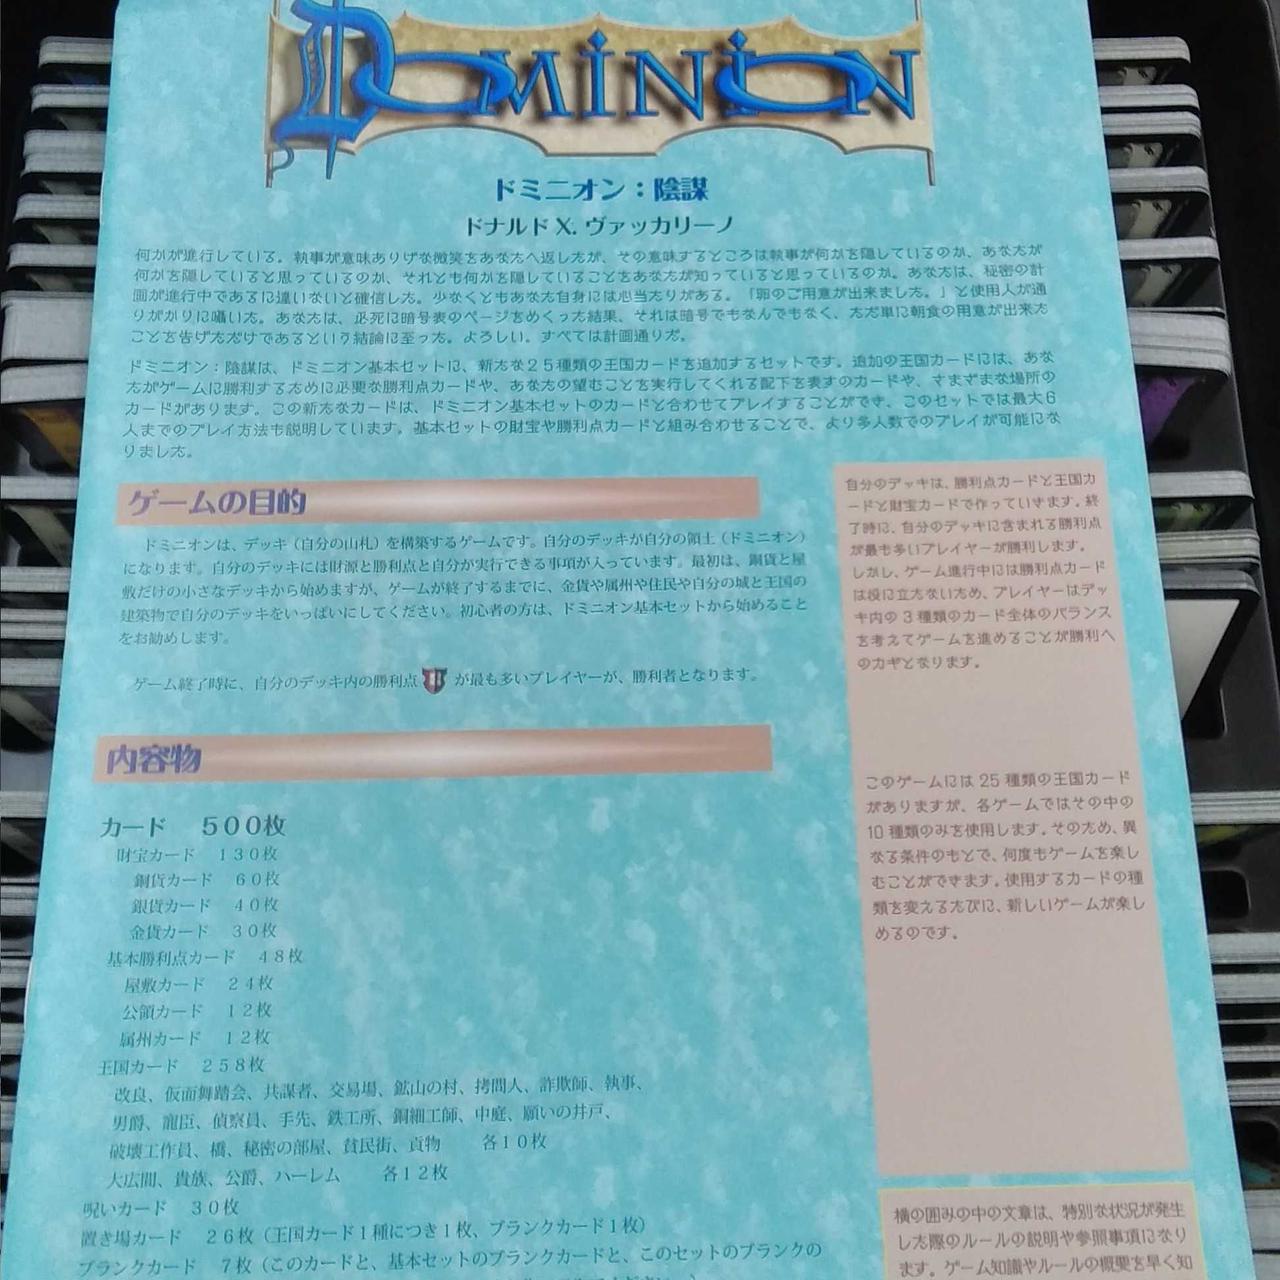 DOMINION
ドミニオン：陰謀
ドナルド X. ヴァッカリーノ
何かが進行している。執事が意味ありげな微笑をあなたへ返したが、その意味するところは執事が何かを隠しているのか、あなたが
何かを隠していると思っているのか、それとも何かを隠していることをあなたが知っていると思っているのか。あなたは、秘密の計
画が進行中であるに違いないと確信した。少なくともあなた自身には心当たりがある。「卵のご用意が出来ました。」と使用人が通
りがかりに囁いた。あなたは、必死に暗号表のページをめくった結果、それは暗号でもなんでもなく、ただ単に朝食の用意が出来た
ことを告げただけであるという結論に至った。よろしい。すべては計画通りだ。
ドミニオン：陰謀は、ドミニオン基本セットに、新たな２５種類の王国カードを追加するセットです。追加の王国カードには、あな
たがゲームに勝利するために必要な勝利点カードや、あなたの望むことを実行してくれる配下を表すのカードや、さまざまな場所の
カードがあります。この新たなカードは、ドミニオン基本セットのカードと合わせてプレイすることができ、このセットでは最大６
人までのプレイ方法も説明しています。基本セットの財宝や勝利点カードと組み合わせることで、より多人数でのプレイが可能にな
りました。
ゲームの目的
ドミニオンは、デッキ（自分の山札）を構築するゲームです。自分のデッキが自分の領土（ドミニオン）
になります。自分のデッキには財源と勝利点と自分が実行できる事項が入っています。最初は、銅貨と屋
敷だけの小さなデッキから始めますが、ゲームが終了するまでに、金貨や属州や住民や自分の城と王国の
建築物で自分のデッキをいっぱいにしてください。初心者の方は、ドミニオン基本セットから始めること
をお勧めします。
ゲーム終了時に、自分のデッキ内の勝利点 が最も多いプレイヤーが、勝利者となります。
自分のデッキは、勝利点カードと王国カ
ードと財宝カードで作っていきます。終
了時に、自分のデッキに含まれる勝利点
が最も多いプレイヤーが勝利します。
しかし、ゲーム進行中には勝利点カード
は役に立たないため、プレイヤーはデッ
キ内の３種類のカード全体のバランス
を考えてゲームを進めることが勝利へ
のカギとなります。
内容物
カード　５００枚
財宝カード　１３０枚
銅貨カード　６０枚
銀貨カード　４０枚
金貨カード　３０枚
基本勝利点カード　４８枚
屋敷カード　２４枚
公領カード　１２枚
属州カード　１２枚
王国カード　２５８枚
改良、仮面舞踏会、共謀者、交易場、鉱山の村、拷問人、詐欺師、執事、
男爵、寵臣、偵察員、手先、鉄工所、銅細工師、中庭、願いの井戸、
破壊工作員、橋、秘密の部屋、貧民街、貢物　　各１０枚
大広間、貴族、公爵、ハーレム　　各１２枚
呪いカード　３０枚
置き場カード　２６枚（王国カード１種につき１枚、ブランクカード１枚）
ブランクカード　７枚（このカードと、基本セットのブランクカードと、このセットのブランクの
このゲームには 25 種類の王国カード
がありますが、各ゲームではその中の
10 種類のみを使用します。そのため、異
なる条件のもとで、何度もゲームを楽し
むことができます。使用するカードの種
類を変えるたびに、新しいゲームが楽し
めるのです。
横の囲みの中の文章は、特別な状況が発生
した際のルールの説明や参照事項になり
ます。ゲーム知識やルールの概要を早く知